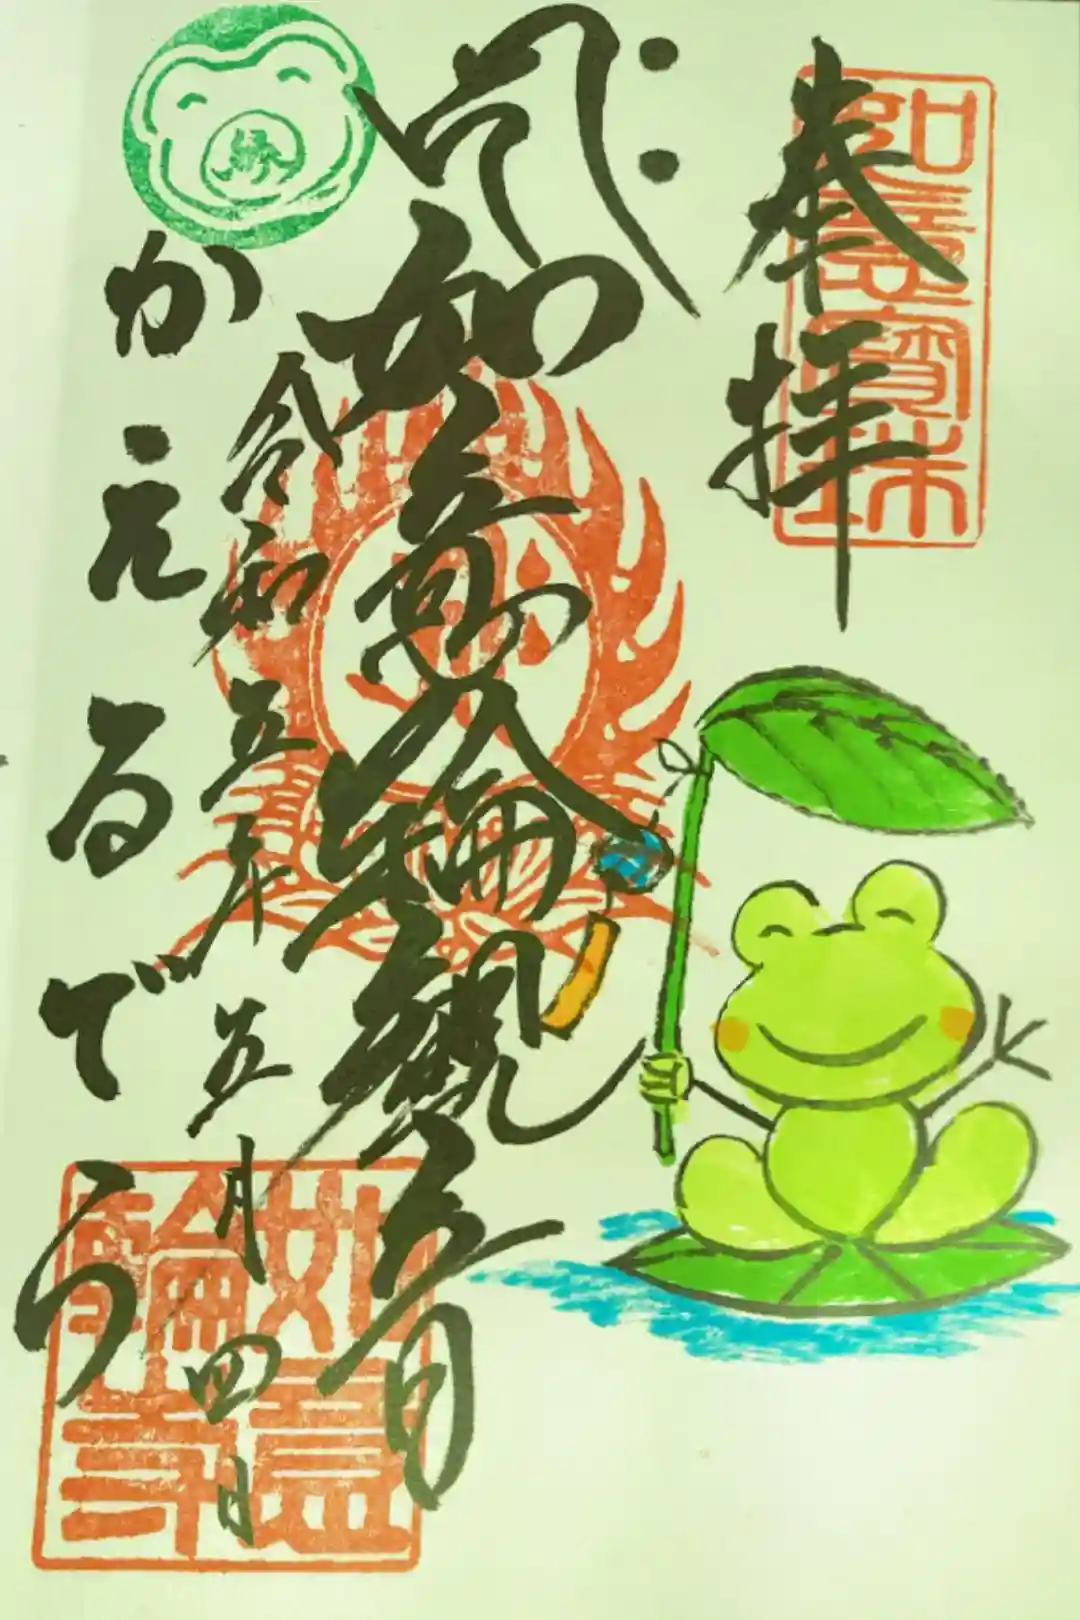 奉拝
如意寶珠
如意輪観音
令和五年五月四日
かえるでら
縁
如意輪寺